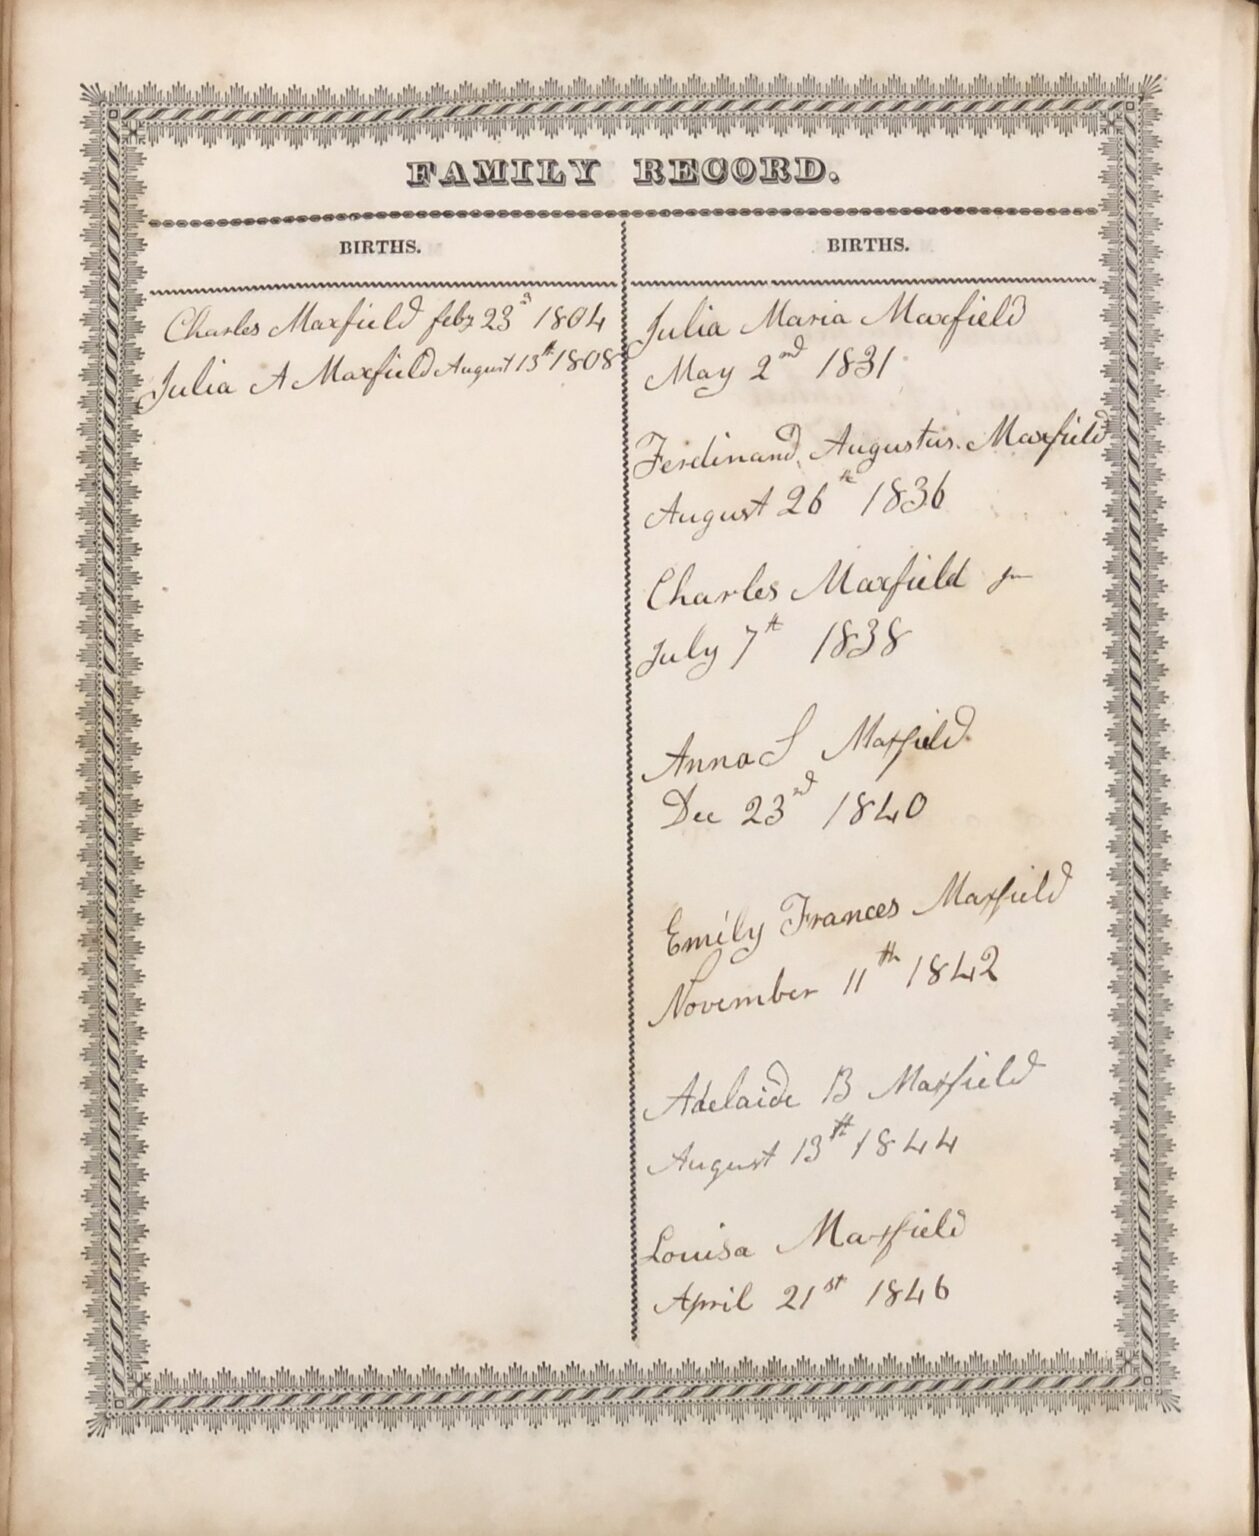 FAMILY RECORD.
BIRTHS.
Charles Maxfield feby 23d 1804
Julia A Maxfield August 13th 1808
BIRTHS.
Julia Maria Maxfield
May 2nd 1831
Ferdinand, Augustus. Maxfield
August 26th 1836
Charles Maxfield Jun
July 7th 1838
Anna S Maxfield
Dec 23rd 1840
Emily Frances Maxfield
November 11th 1842
Adelaide B Maxfield
August 13th 1844
Louisa Maxfield
April 21st 1846